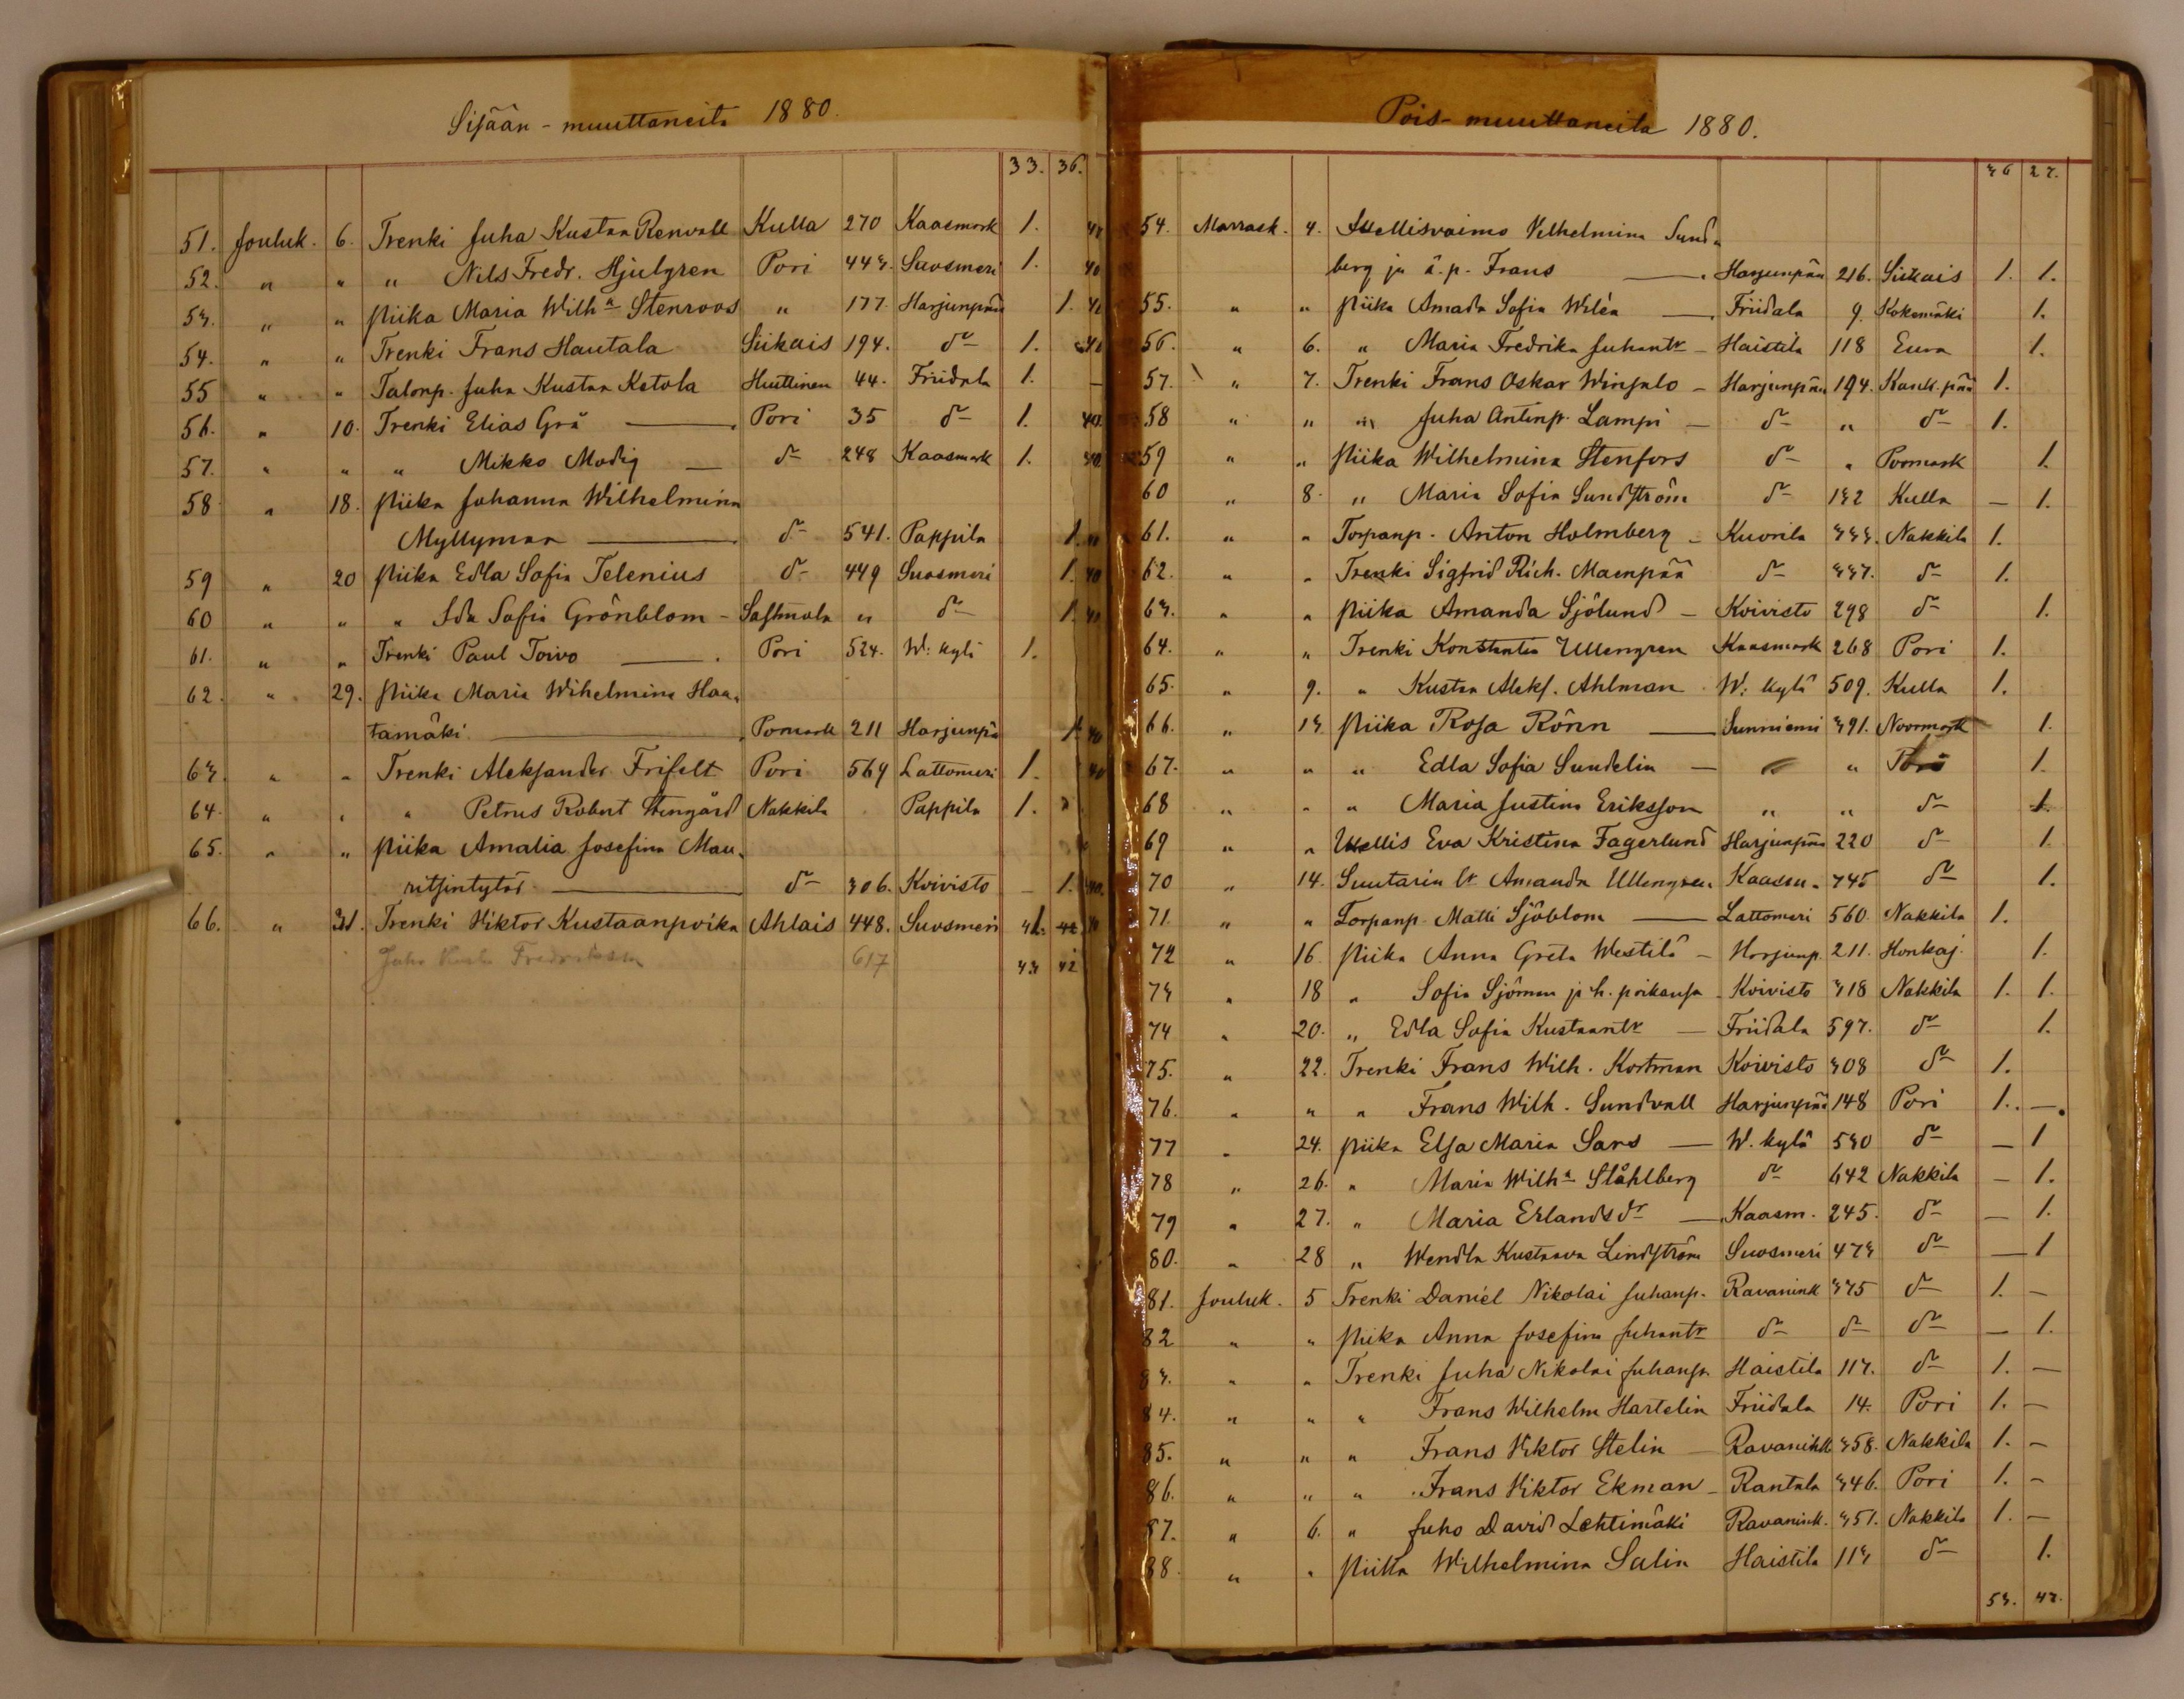 Sisään-muuttaneita 1880.
33. 36.
51. Jouluk. 6. Trenki Juha Kustaa Renvall Kulla 270 Kaasmark 1.
52. " " " Nils Fredr. Hjulgren Pori 443. Suosmeri 1. 40
53. " " Piika Maria Wilh:a Stenroos " 177. Harjunpää 1.
54. " " Trenki Frans Hautala Siikais 194. do 1.
55 " " Talonp. Juha Kustaa Ketola Huittinen 44. Friidala 1. —
56. " 10. Trenki Elias Grå — Pori 35 do 1. 40.
57. " " " Mikko Modig — do 248 Kaasmark 1.
58 " 18. Piika Johanna Wilhelmina
Myllymaa — do 541. Pappila 1.
59 " 20 Piika Edla Sofia Telenius do 449 Suosmeri 1. 40
60 " " " Ida Sofia Grönblom - Sastmola " do 1. 40
61. " " Trenki Paul Toivo — Pori 524. W: kylä 1.
62. " 29. Piika Maria Wihelmina Haa-
tamäki — Pomark 211 Harjunpä 1. 40
63. " " Trenki Aleksander Frifelt Pori 564 Lattomeri 1. 40
64. " " " Petrus Robert Stengård Nakkila Pappila 1.
65. " " Piika Amalia Josefina Mau-
ritsintytär — do 306. Koivisto — 1. 40.
66. " 31. Trenki Viktor Kustaanpoika Ahlais 448. Suosmeri
Juho Fredriksson 617 43 42
Pois-muuttaneita 1880.
36 27.
54. Marrask. 4. Itsellisvaimo Vilhelmina Sund-
berg ja ä.p. Frans — Harjunpää 216. Siikais 1. 1.
55. " " Piika Amada Sofia Wilén — Friidala 9. Kokemäki 1.
56. " 6. " Maria Fredrika Juhantr — Haistila 118 Eura 1.
57. " 7. Trenki Frans Oskar Winsalo — Harjunpää 194. Kank.pää 1.
58 " " " Juha Antinp. Lampi — do " do 1.
59 " " Piika Wilhelmina Stenfors do " Pormark 1.
60 " 8. " Maria Sofia Sundström do 132 Kulla — 1.
61. " " Torpanp. Anton Holmberg — Kuorila 333. Nakkila 1.
62. " " Trenki Sigfrid Rich. Maenpää do 337. do 1.
63. " " Piika Amanda Sjölund — Koivisto 298 do 1.
64. " " Trenki Konstantin Ullengren Kaasmark 268 Pori 1.
65. " 9. " Kustaa Aleks. Ahlman W: kylä 509. Kulla 1.
66. " 13 Piika Rosa Rönn — Sunniemi 391. Noormark 1.
67. " " " Edla Sofia Sundelin — " Pori 1.
68 " " " Maria Justina Eriksson " " do 1.
69 " " Itsellis Eva Kristina Fagerlund Harjunpää 220 do 1.
70 " 14. Suutarin lr Amanda Ullengren Kaasm. 745 do 1.
71. " " Torpanp. Matti Sjöblom — Lattomeri 560. Nakkila 1.
72 " 16. Piika Anna Greta Westilä — Harjunp. 211. Honkaj. 1.
73 " 18 " Sofia Sjöman ja h. poikansa Koivisto 318 Nakkila 1. 1.
74 " 20. " Edla Sofia Kustaantr — Friidala 597. do 1.
75. " 22. Trenki Frans Wilh. Kortman Koivisto 308 do 1.
76. " " " Frans Wilh. Sundvall Harjunpää 148 Pori 1. —.
77 " 24. Piika Elsa Maria Sars — W. kylä 530 do — 1
78 " 26. " Maria Wilh:a Ståhlberg do 642 Nakkila — 1.
79 " 27. " Maria Erlandsdr — Kaasm. 245. do — 1.
80. " 28 " Wendla Kustaava Lindström Suosmeri 473 do — 1
81. Jouluk. 5 Trenki Daniel Nikolai Juhanp. Ravanink 375 do 1. —
82 " " Piika Anna Josefina Juhantr do do do — 1.
83. " " Trenki Juha Nikolai Juhanp. Haistila 113. do 1. —
84. " " " Frans Wilhelm Hartelin Friidala 14. Pori 1. —
85. " " " Frans Viktor Stelin — Ravanink 358. Nakkila 1. —
86. " " " Frans Viktor Ekman — Rantala 346. Pori 1. —
87. " 6. " Juho David Lehtimäki Ravanink. 351. Nakkila 1. —
88. " " Piika Wilhelmina Salin Haistila 113 do 1.
53. 43.